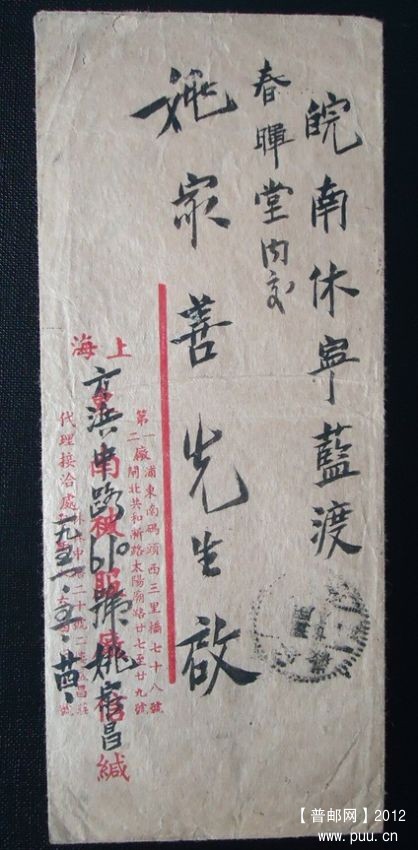 皖南休寧藍渡
春暉堂内交
姚家善先生啟
第一廠浦東南碼頭西三里橋七十八號
第二廠閘北共和新路太陽廟路廿七至廿九號
上海
方浜中路610號姚富昌
緘
代理接洽處
一九五一·五·廿
【普邮网】2012
www.puu.cn